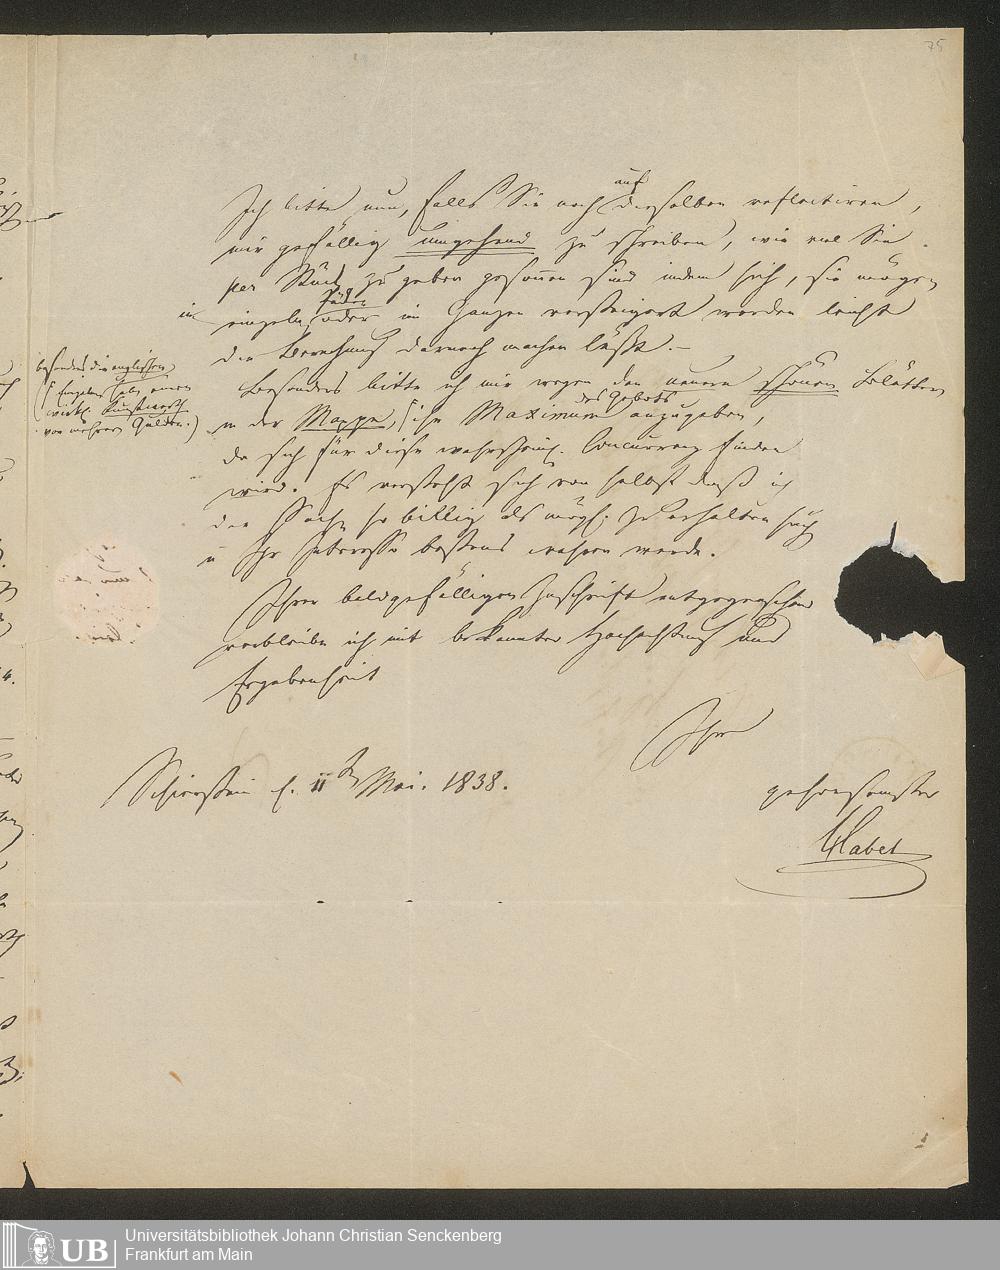 75
Ich bitte nun, falls Sie noch auf dieselben reflectiren,
mir gefällig umgehend zu schreiben, wie viel Sie
per Stück zu geben gesonnen sind indem sich, sie mögen
einzeln, in Päcken oder im Ganzen versteigert werden leicht
die Berechnung darnach machen läßt. –
Besonders bitte ich mir wegen den neuern schönen Blättern
in der Mappe, ihr Maximum des Gebots anzugeben,
besonders die englischen
einen
wirkl. Kunstwerth
von mehrern Gulden.)
da sich für diese wahrscheinl. Concurrenz finden
wird. Es versteht sich von selbst daß ich
die Sache so billig als mögl. zu erhalten suche
u Ihr Interesse bestens wahren werde.
Ihrer baldgefälligen Zuschrift entgegensehend
verbleibe ich mit bekannter Hochachtung und
Ergebenheit
Ihr
Schierstein d. 11ten Mai. 1838.
gehorsamster
Habel
Universitätsbibliothek Johann Christian Senckenberg
Frankfurt am Main
UB